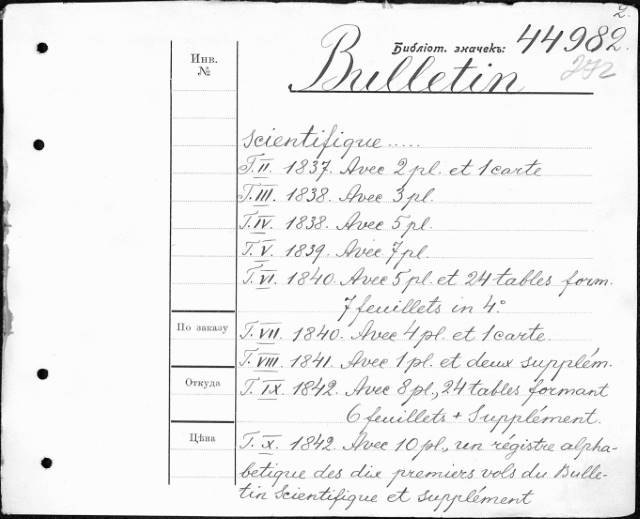 2.
Библіот. значекъ: 44982.
272
Bulletin
Инв.
№
scientifique.....
T. II. 1837. Avec 2 pl. et 1 carte
T. III. 1838. Avec 3 pl.
T. IV. 1838. Avec 5 pl.
T. V. 1839. Avec 7 pl.
T. VI. 1840. Avec 5 pl. et 24 tables form.
7 feuillets in 4°.
По заказу
T. VII. 1840. Avec 4 pl. et 1 carte.
T. VIII. 1841. Avec 1 pl. et deux supplém.
Откуда
T. IX. 1842. Avec 8 pl., 24 tables formant
6 feuillets + Supplément.
Цѣна
T. X. 1842. Avec 10 pl., un régistre alpha-
betique des dix premiers vols du Bulle-
tin Scientifique et supplément